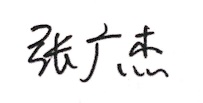 张广杰